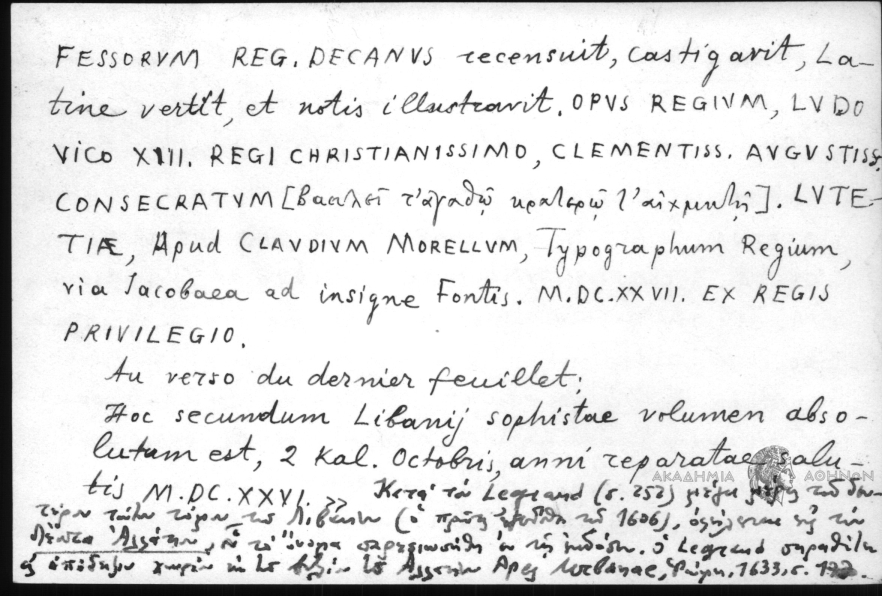 FESSORVM REG. DECANVS recensuit, castigavit, La-
tine vertit, et notis illustravit. OPVS REGIVM, LVDO
VICO XIII. REGI CHRISTIANISSIMO, CLEMENTISS. AVGVSTISS.
CONSECRATVM [βασιλεῖ τ'ἀγαθῷ κρατερῷ τ'αἰχμητῇ]. LVTE-
TIÆ, Apud CLAVDIVM MORELLVM, Typographum Regium,
via Iacobaea ad insigne Fontis. M.DC.XXVII. EX REGIS
PRIVILEGIO.
Au verso du dernier feuillet:
Hoc secundum Libanij sophistae volumen abso-
lutum est, 2 Kal. Octobris, anni reparatae salu-
ΑΚΑΔΗΜΙΑ ΑΘΗΝΩΝ
tis M.DC.XXVI. >> Κατά τόν Legrand (σ. 252) μέγα μέρος τοῦ δευ-
τέρου τούτου τόμου τοῦ Λιβανίου (ὁ πρῶτος ἐξεδόθη τό 1606), ὀφείλεται εἰς τόν
Λέοντα Ἀλλάτιον, τό ὄνομα ἐν τῇ ἐκδόσει. ὁ Legrand παραθέτει
χωρίον ἐκ τοῦ τοῦ Ἀλλατίου Apes Urbanae, Ρώμη, 1633, σ.